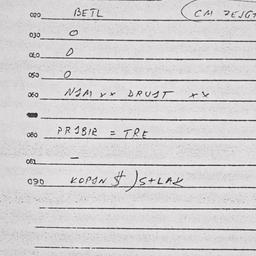 020 BETL (CM
030 O
040 O
050 O
060 NSM xx DRUST xx
080 PRSBIR = TRE
081 -
090 KOPSN $ ) S+LAK